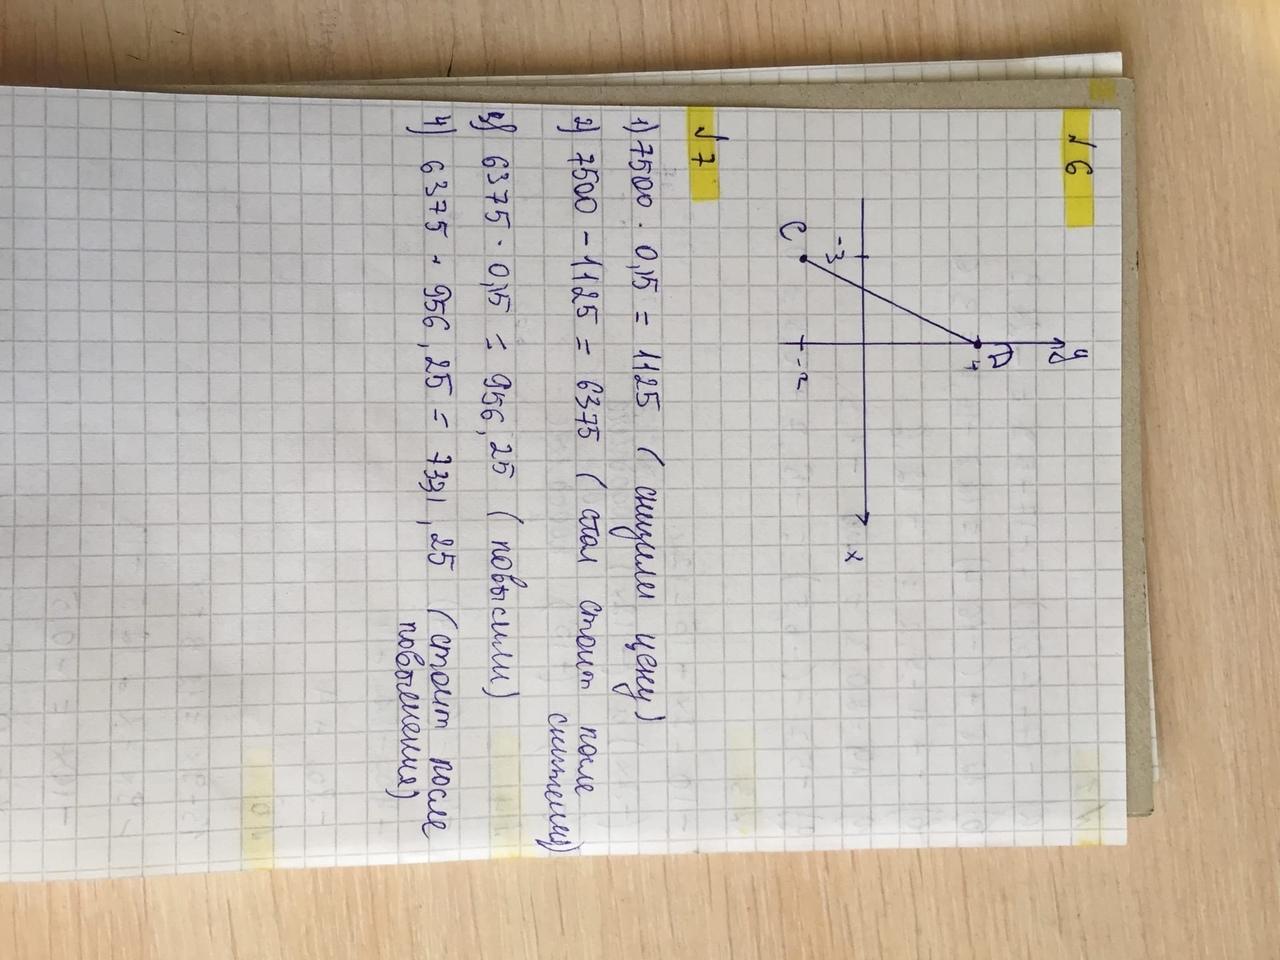 √ 6
y
D
4
-3
x
C
-2
√ 7
1) 7500 · 0,15 = 1125 ( снизили цену)
2) 7500 - 1125 = 6375 ( стал стоит после
снижения)
3) 6375 · 0,15 = 956,25 ( повысили)
4) 6375 + 956,25 = 7331,25 ( стоит после
повышения)